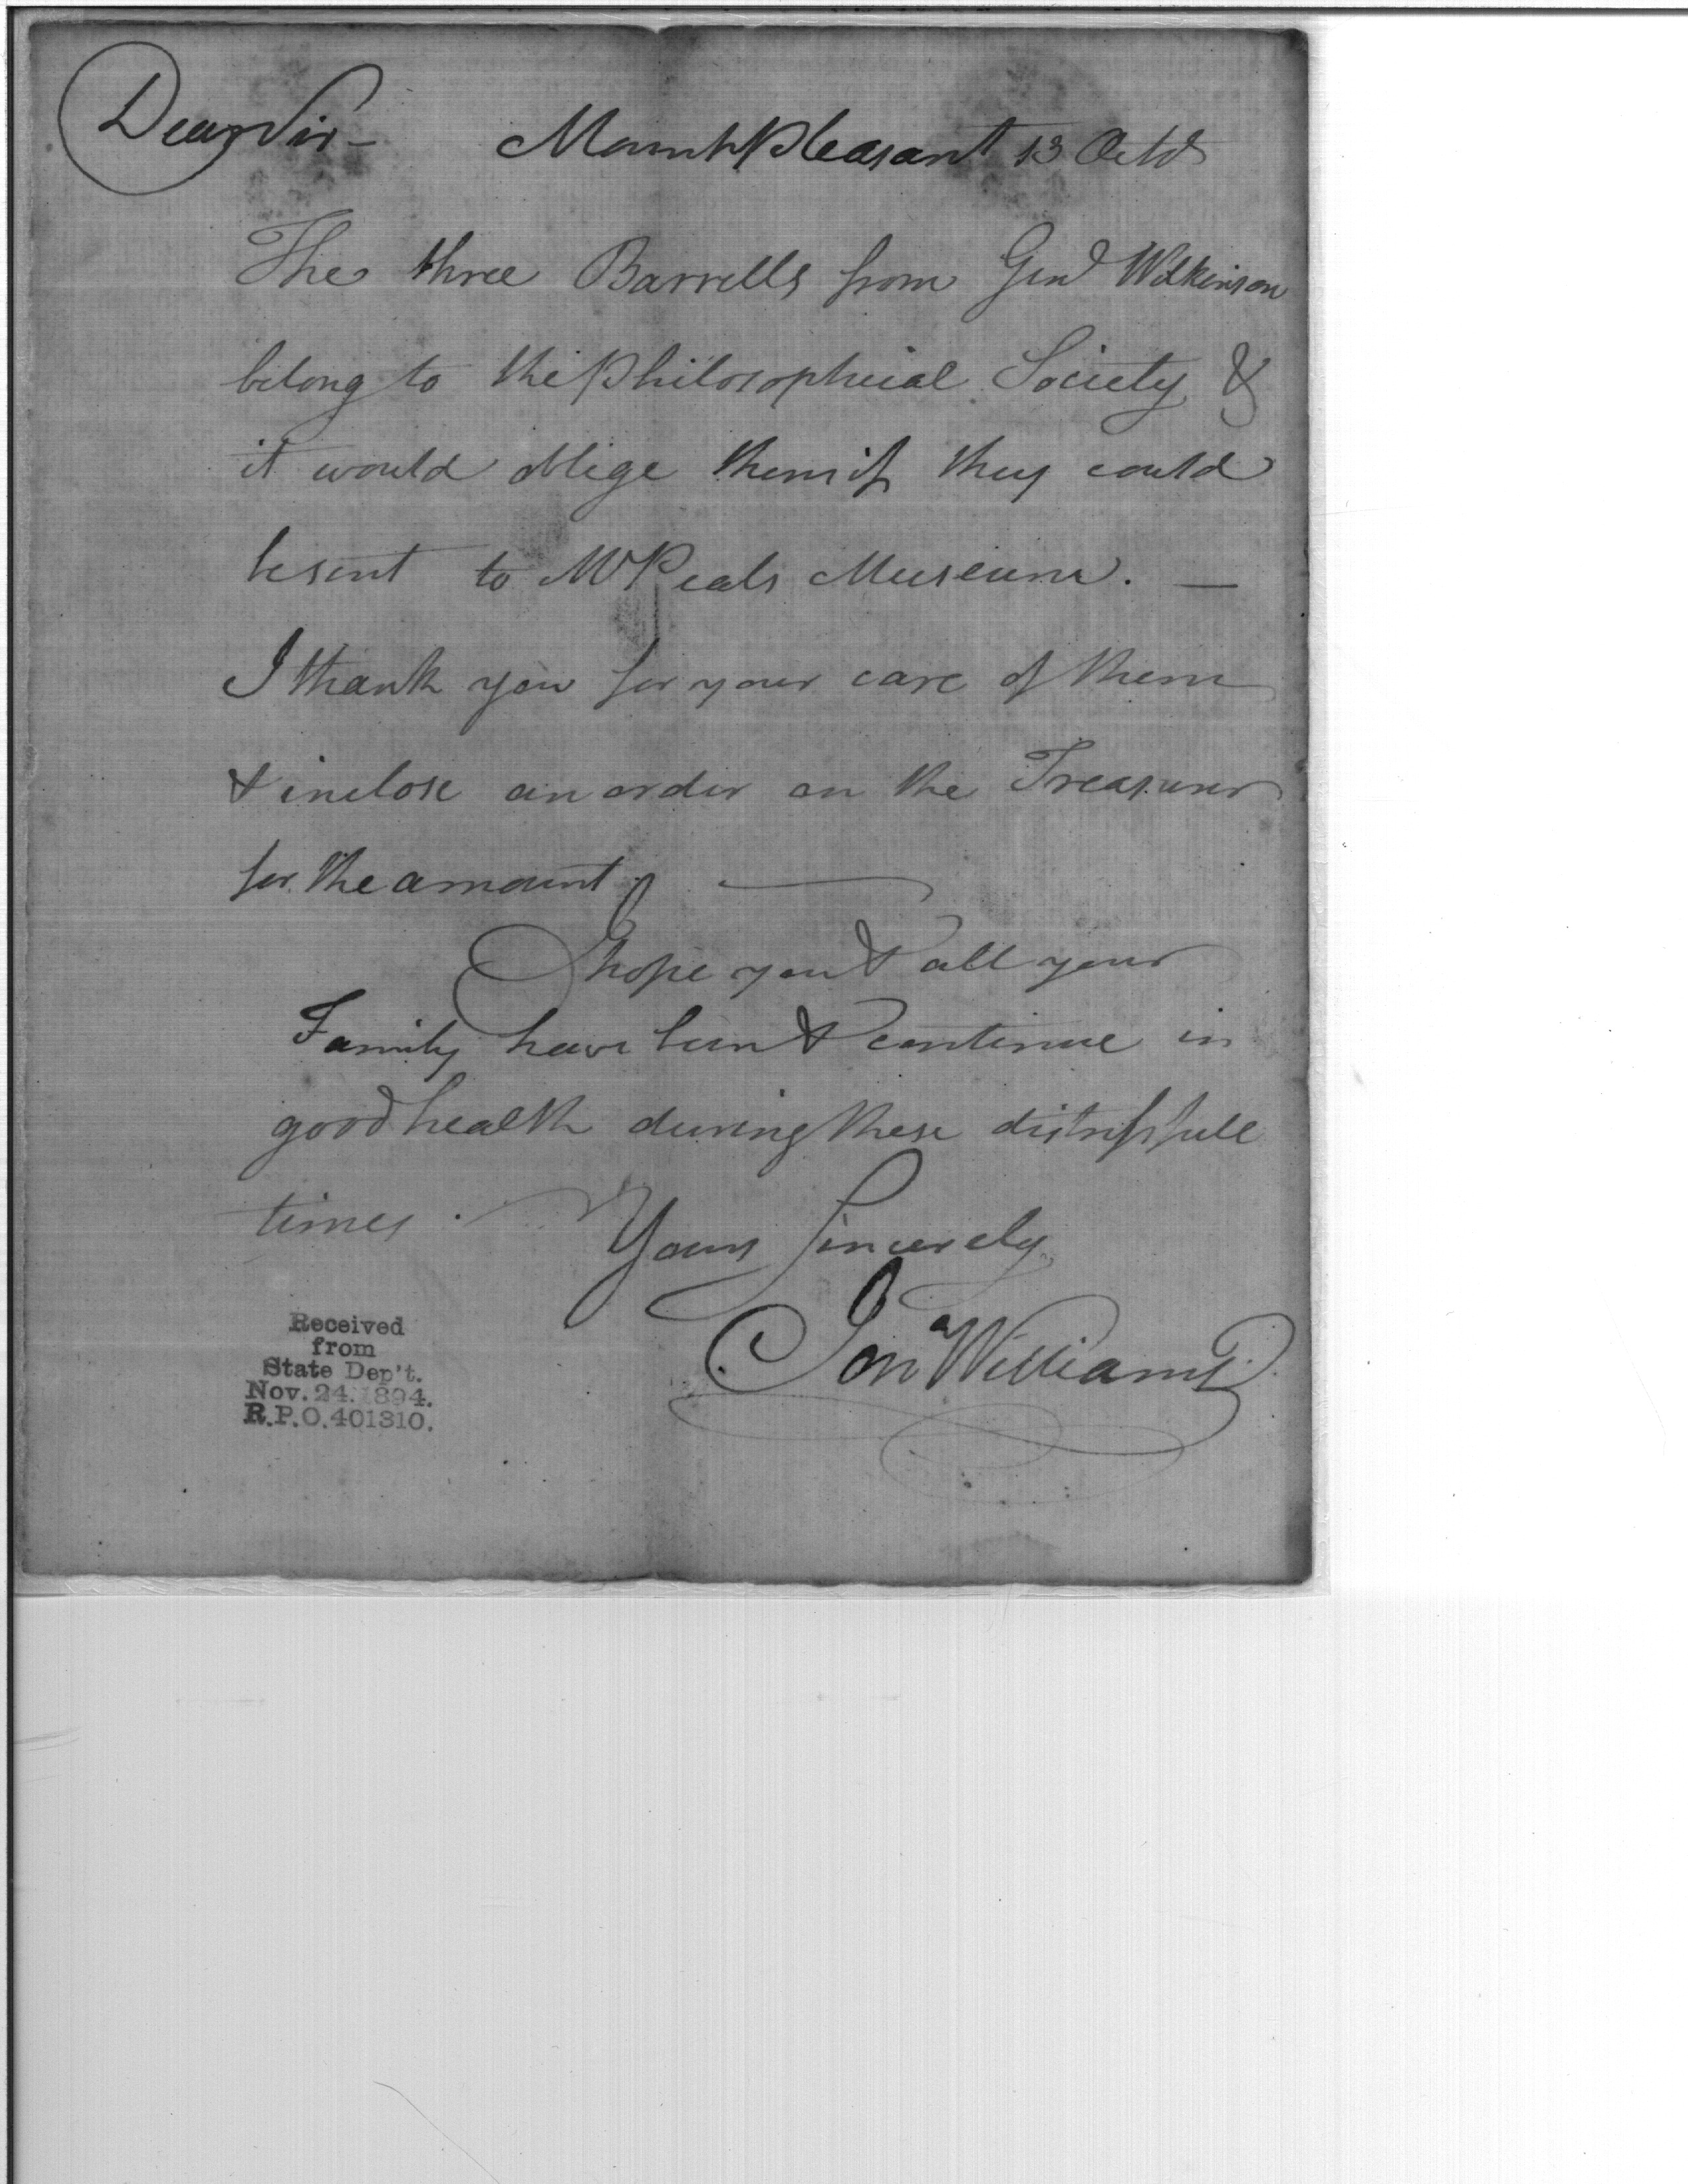 Dear Sir -
Mount Pleasant 13 Octr
The three Barrells from Genl Wilkinson
belong to the Philosophical Society &
it would oblige them if they could
be sent to Mr Peals Museum. —
I thank you for your care of them
& inclose an order on the Treasurer
for the amount. —
I hope you & all your
Family have been & continue in
good health during these distressfull
times.
Yours Sincerely
Jona Williams
Received
from
State Dep't.
Nov. 24. 1894.
R.P.O. 401310.